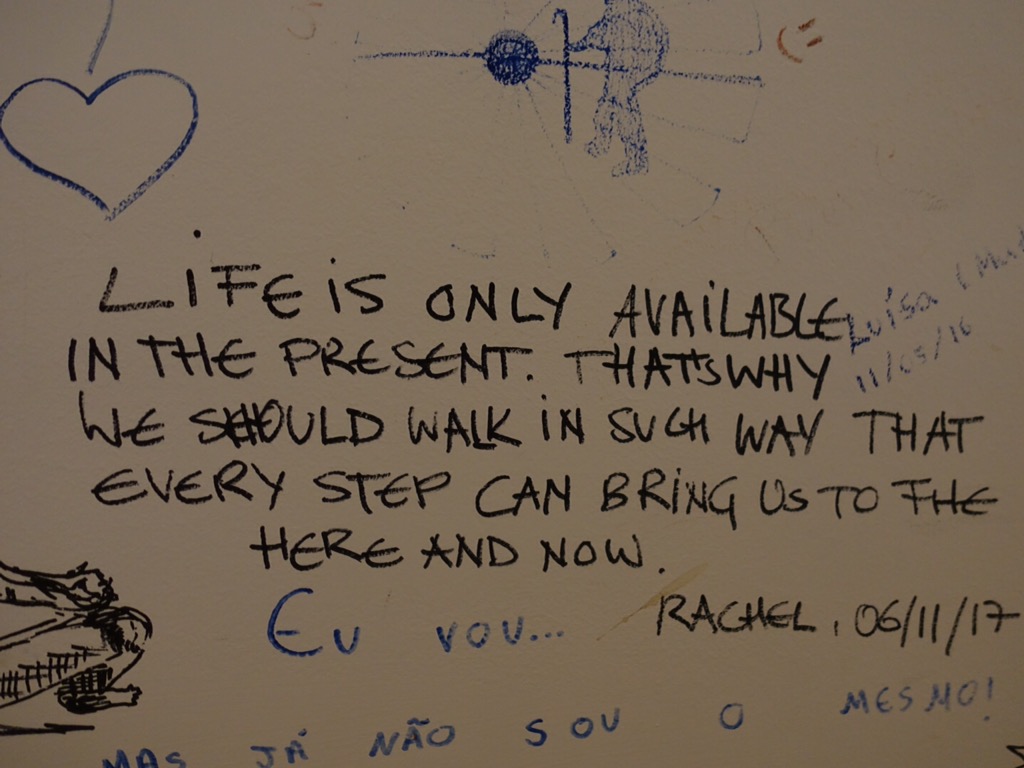 LIFE IS ONLY AVAILABLE
IN THE PRESENT. THAT'S WHY
WE SHOULD WALK IN SUCH WAY THAT
EVERY STEP CAN BRING US TO THE
HERE AND NOW.
RACHEL, 06/11/17
Luísa
11/05/16
EU VOU...
MAS JÁ NÃO SOU O MESMO!